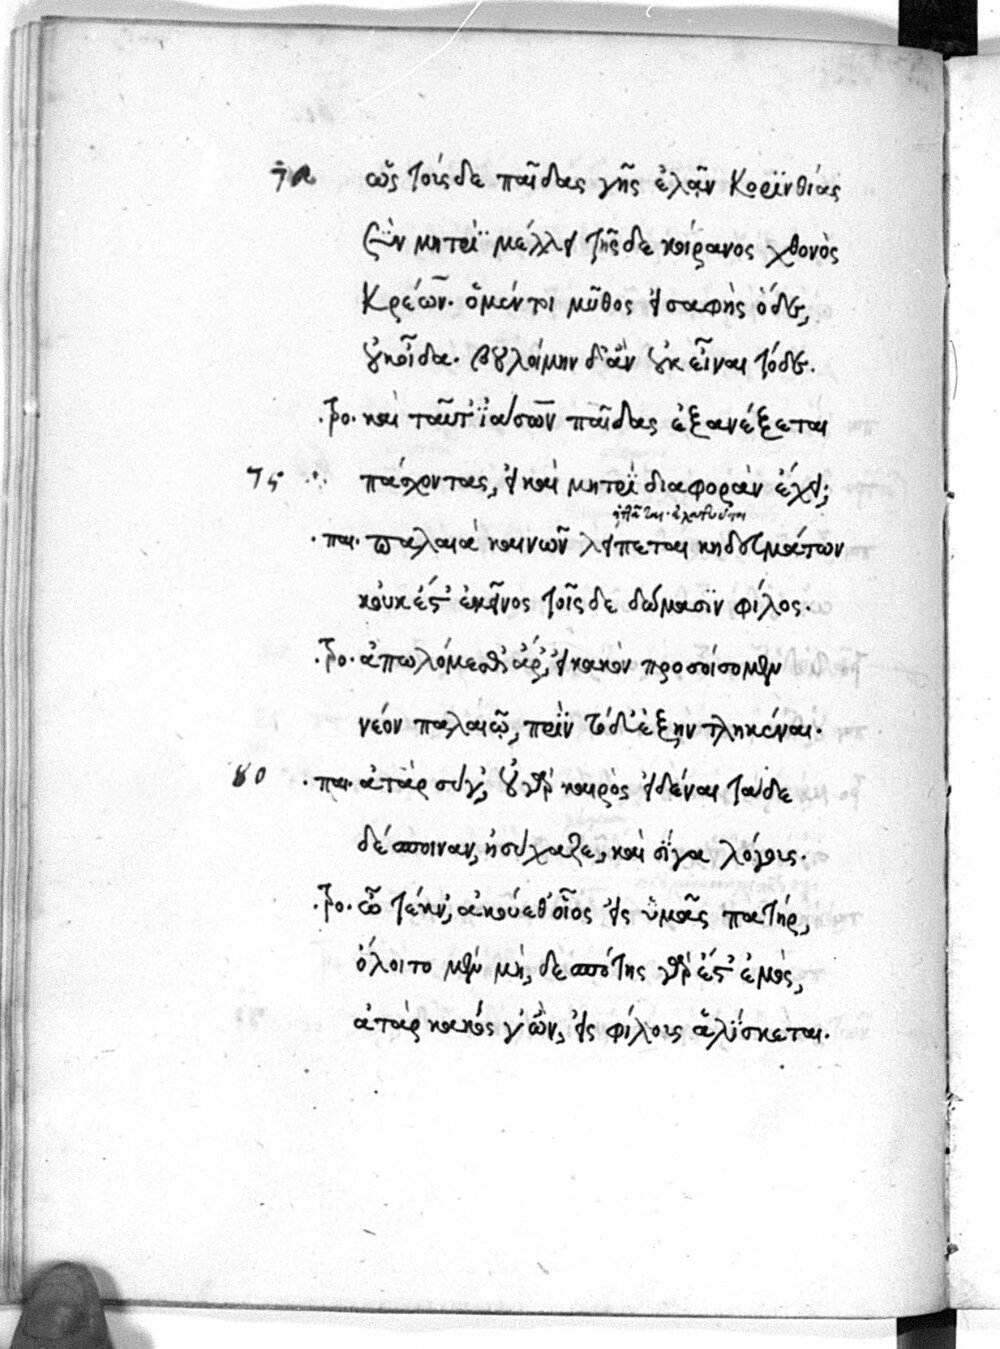 70 ὡς τούσδε παῖδας γῆς ἐλᾶν Κορϊνθίας
ξὺν μητρὶ μέλλει τῆσδε κοίρανος χθονὸς
Κρέων. ὁ μέντοι μῦθος εἰ σαφὴς ὅδε,
οὐκ οἶδα. βουλοίμην δ' ἂν οὐκ εἶναι τόδε.
τρο. καὶ ταῦτ' ϊάσων παῖδας ἐξανέξεται
75 πάσχοντας, εἰ καὶ μητρὶ διαφορὰν ἔχει;
παι. παλαιὰ καινῶν λείπεται κηδευμάτων
κοὐκ ἔστ' ἐκεῖνος τοῖσδε δώμασϊν φίλος.
τρο. ἀπωλόμεσθ' ἄρ', εἰ κακὸν προσοίσομεν
νέον παλαιῷ, πρὶν τόδ' ἐξηντληκέναι.
80 παι. ἀτὰρ σύγ', οὐ γὰρ καιρὸς εἰδέναι τάδε
δέσποιναν, ἡσύχαζε, καὶ σίγα λόγοις.
τρο. ὦ τέκν', ἀκούεθ' οἷος εἰς ὑμᾶς πατήρ,
ὄλοιτο μὲν μὴ, δεσπότης γὰρ ἔστ' ἐμὸς,
ἀτὰρ κακός γ' ὢν, εἰς φίλους ἁλΐσκεται.